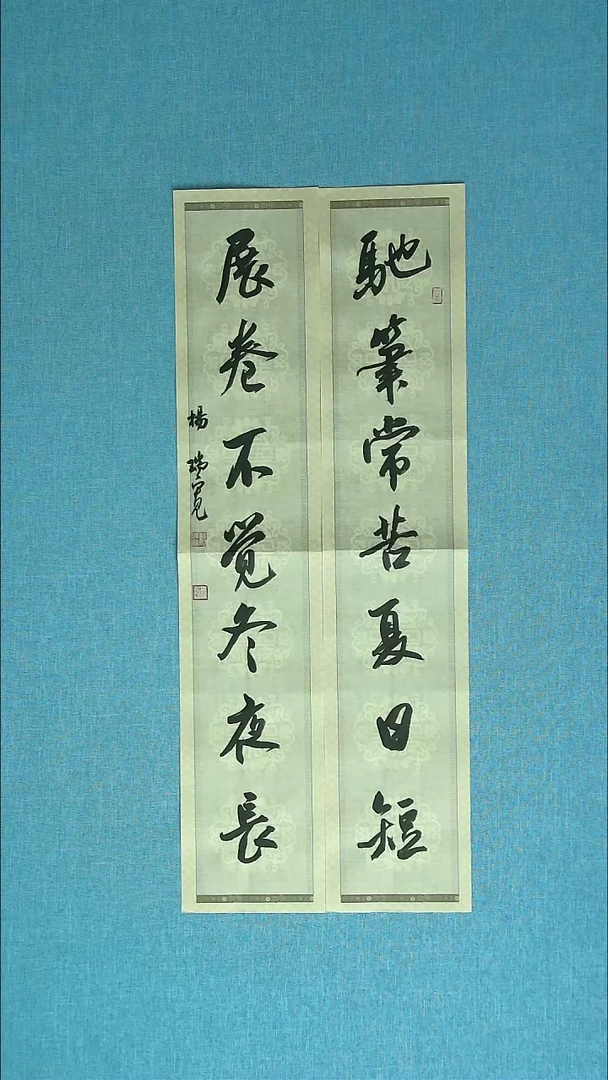 馳筆常苦夏日短
展卷不觉冬夜長
楊瑞寛